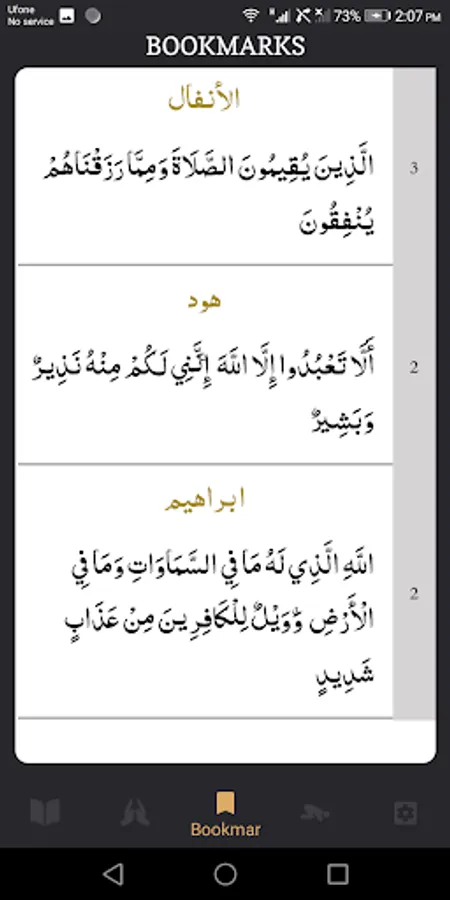 Ufone
No service
73%
2:07 PM
BOOKMARKS
الأنفال
الَّذِينَ يُقِيمُونَ الصَّلَاةَ وَمِمَّا رَزَقْنَاهُمْ
يُنْفِقُونَ
3
هود
أَلَّا تَعْبُدُوا إِلَّا اللَّهَ إِنَّنِي لَكُمْ مِنْهُ نَذِيرٌ
وَبَشِيرٌ
2
ابراهيم
اللَّهِ الَّذِي لَهُ مَا فِي السَّمَاوَاتِ وَمَا فِي
الْأَرْضِ وَوَيْلٌ لِلْكَافِرِينَ مِنْ عَذَابٍ
شَدِيدٍ
2
Bookmar